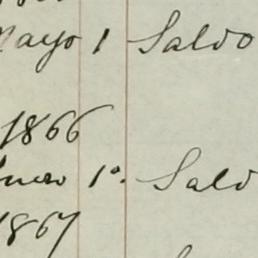 Mayo 1 Saldo
1866
Enero 1º. Sald
1867